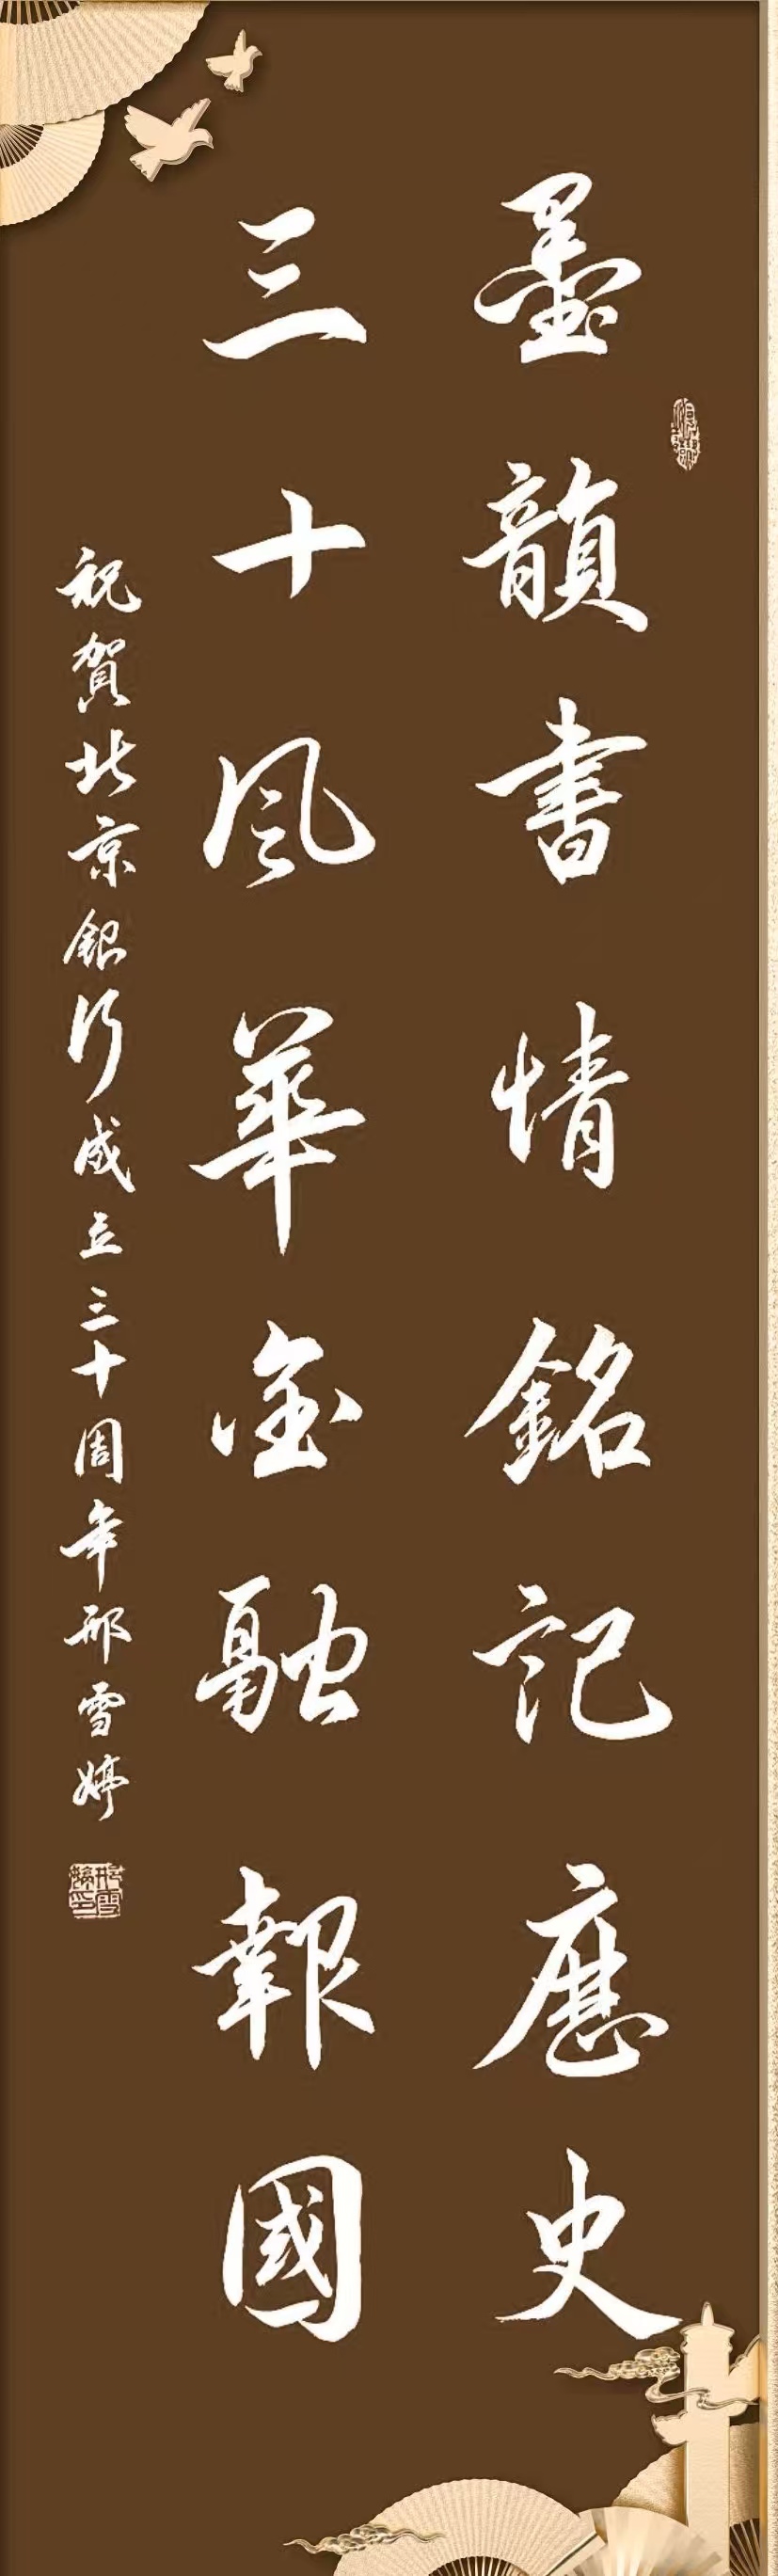 墨韻書情銘記應史
三十风華金融報國
祝賀北京銀行成立三十周年邢雪婷